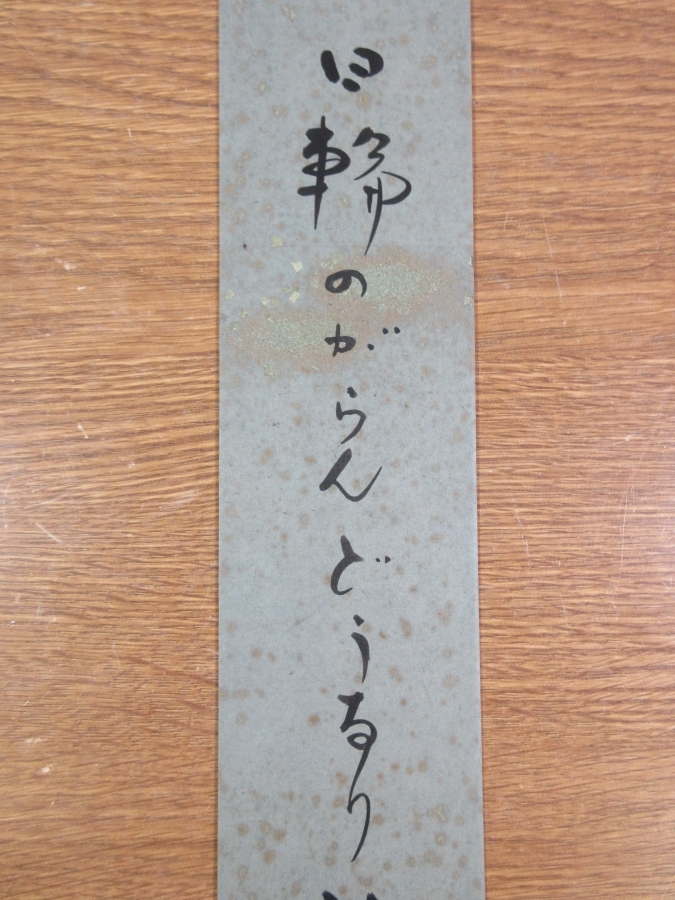 日輪のがらんどうなり